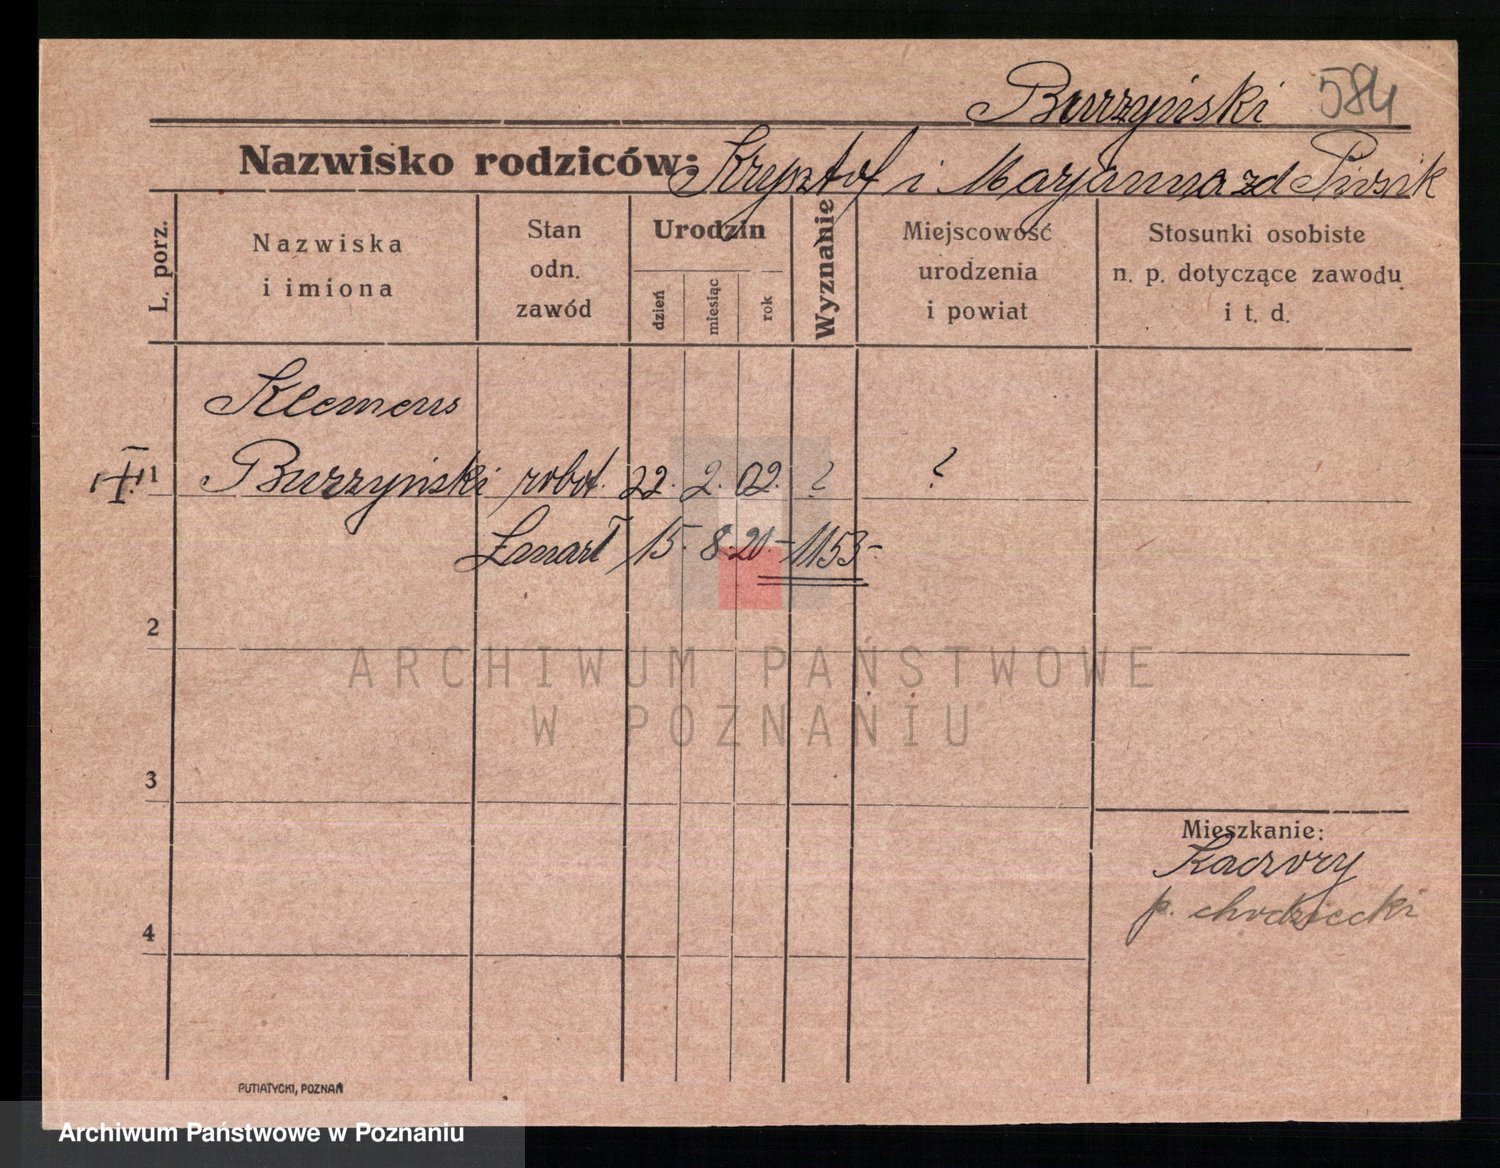 Burzyński 584
Nazwisko rodziców: Krysztof i Marjanna zd Piosik
L. porz.
Nazwiska
i imiona
Stan
odn.
zawód
Urodzin
dzień
miesiąc
rok
Wyznanie
Miejscowość
urodzenia
i powiat
Stosunki osobiste
n. p. dotyczące zawodu
i t. d.
Klemens
1 Burzyński robot. 22. 2. 02. ? ?
Zmarł 15. 8. 20. - 1153 -
2
ARCHIWUM PAŃSTWOWE
W POZNANIU
3
Mieszkanie:
Kaczory
p. chodziecki
4
PUTIATYCKI, POZNAŃ
Archiwum Państwowe w Poznaniu